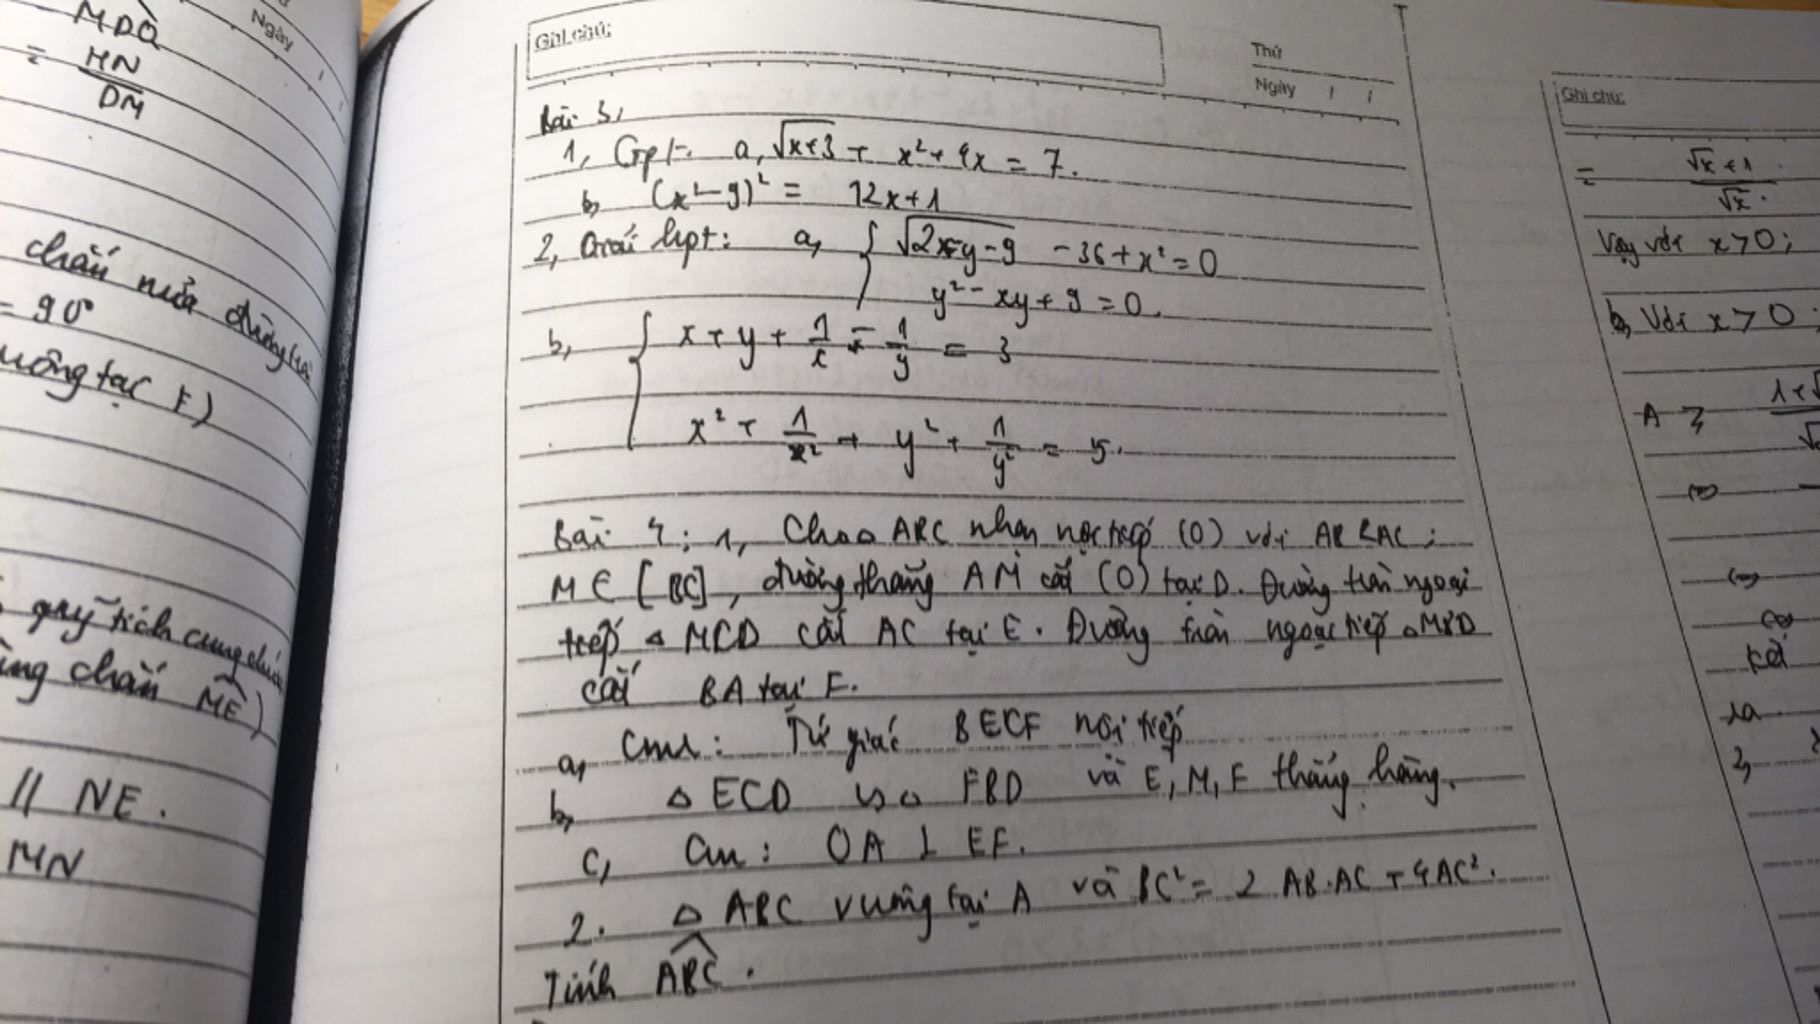 MDQ
= MN/DM
chắn nửa đường tròn
= 90°
vuông tại F)
quỹ tích cung chứa
cùng chắn ME)
// NE.
MN
Ngày / /
Ghi chú:
Thứ
Ngày / /
Bài 3,
1, Gpt: a, √(x+3) + x² + 4x = 7.
b, (x² - 9)² = 12x + 1
2, Giải hpt: a, { √(2x-y-9) - 36 + x² = 0
y² - xy + 9 = 0.
b, { x + y + 1/x + 1/y = 3
x² + 1/x² + y² + 1/y² = 5.
Bài 4: 1, Cho Δ ABC nhọn nội tiếp (O) với AB < AC;
M ∈ [BC], đường thẳng AM cắt (O) tại D. Đường tròn ngoại
tiếp Δ MCD cắt AC tại E. Đường tròn ngoại tiếp Δ MBD
cắt BA tại F.
a, Cm: Tứ giác BECF nội tiếp
b, Δ ECD ∽ Δ FBD và E, M, F thẳng hàng.
c, Cm: OA ⊥ EF.
2. Δ ABC vuông tại A và BC² = 2 AB.AC + 4AC².
Tính ABC.
Ghi chú:
= (√x + 1)/√x.
Vậy với x > 0;
b, Với x > 0
A ≥
(=)
(=)
(=)
kết
1a
2,